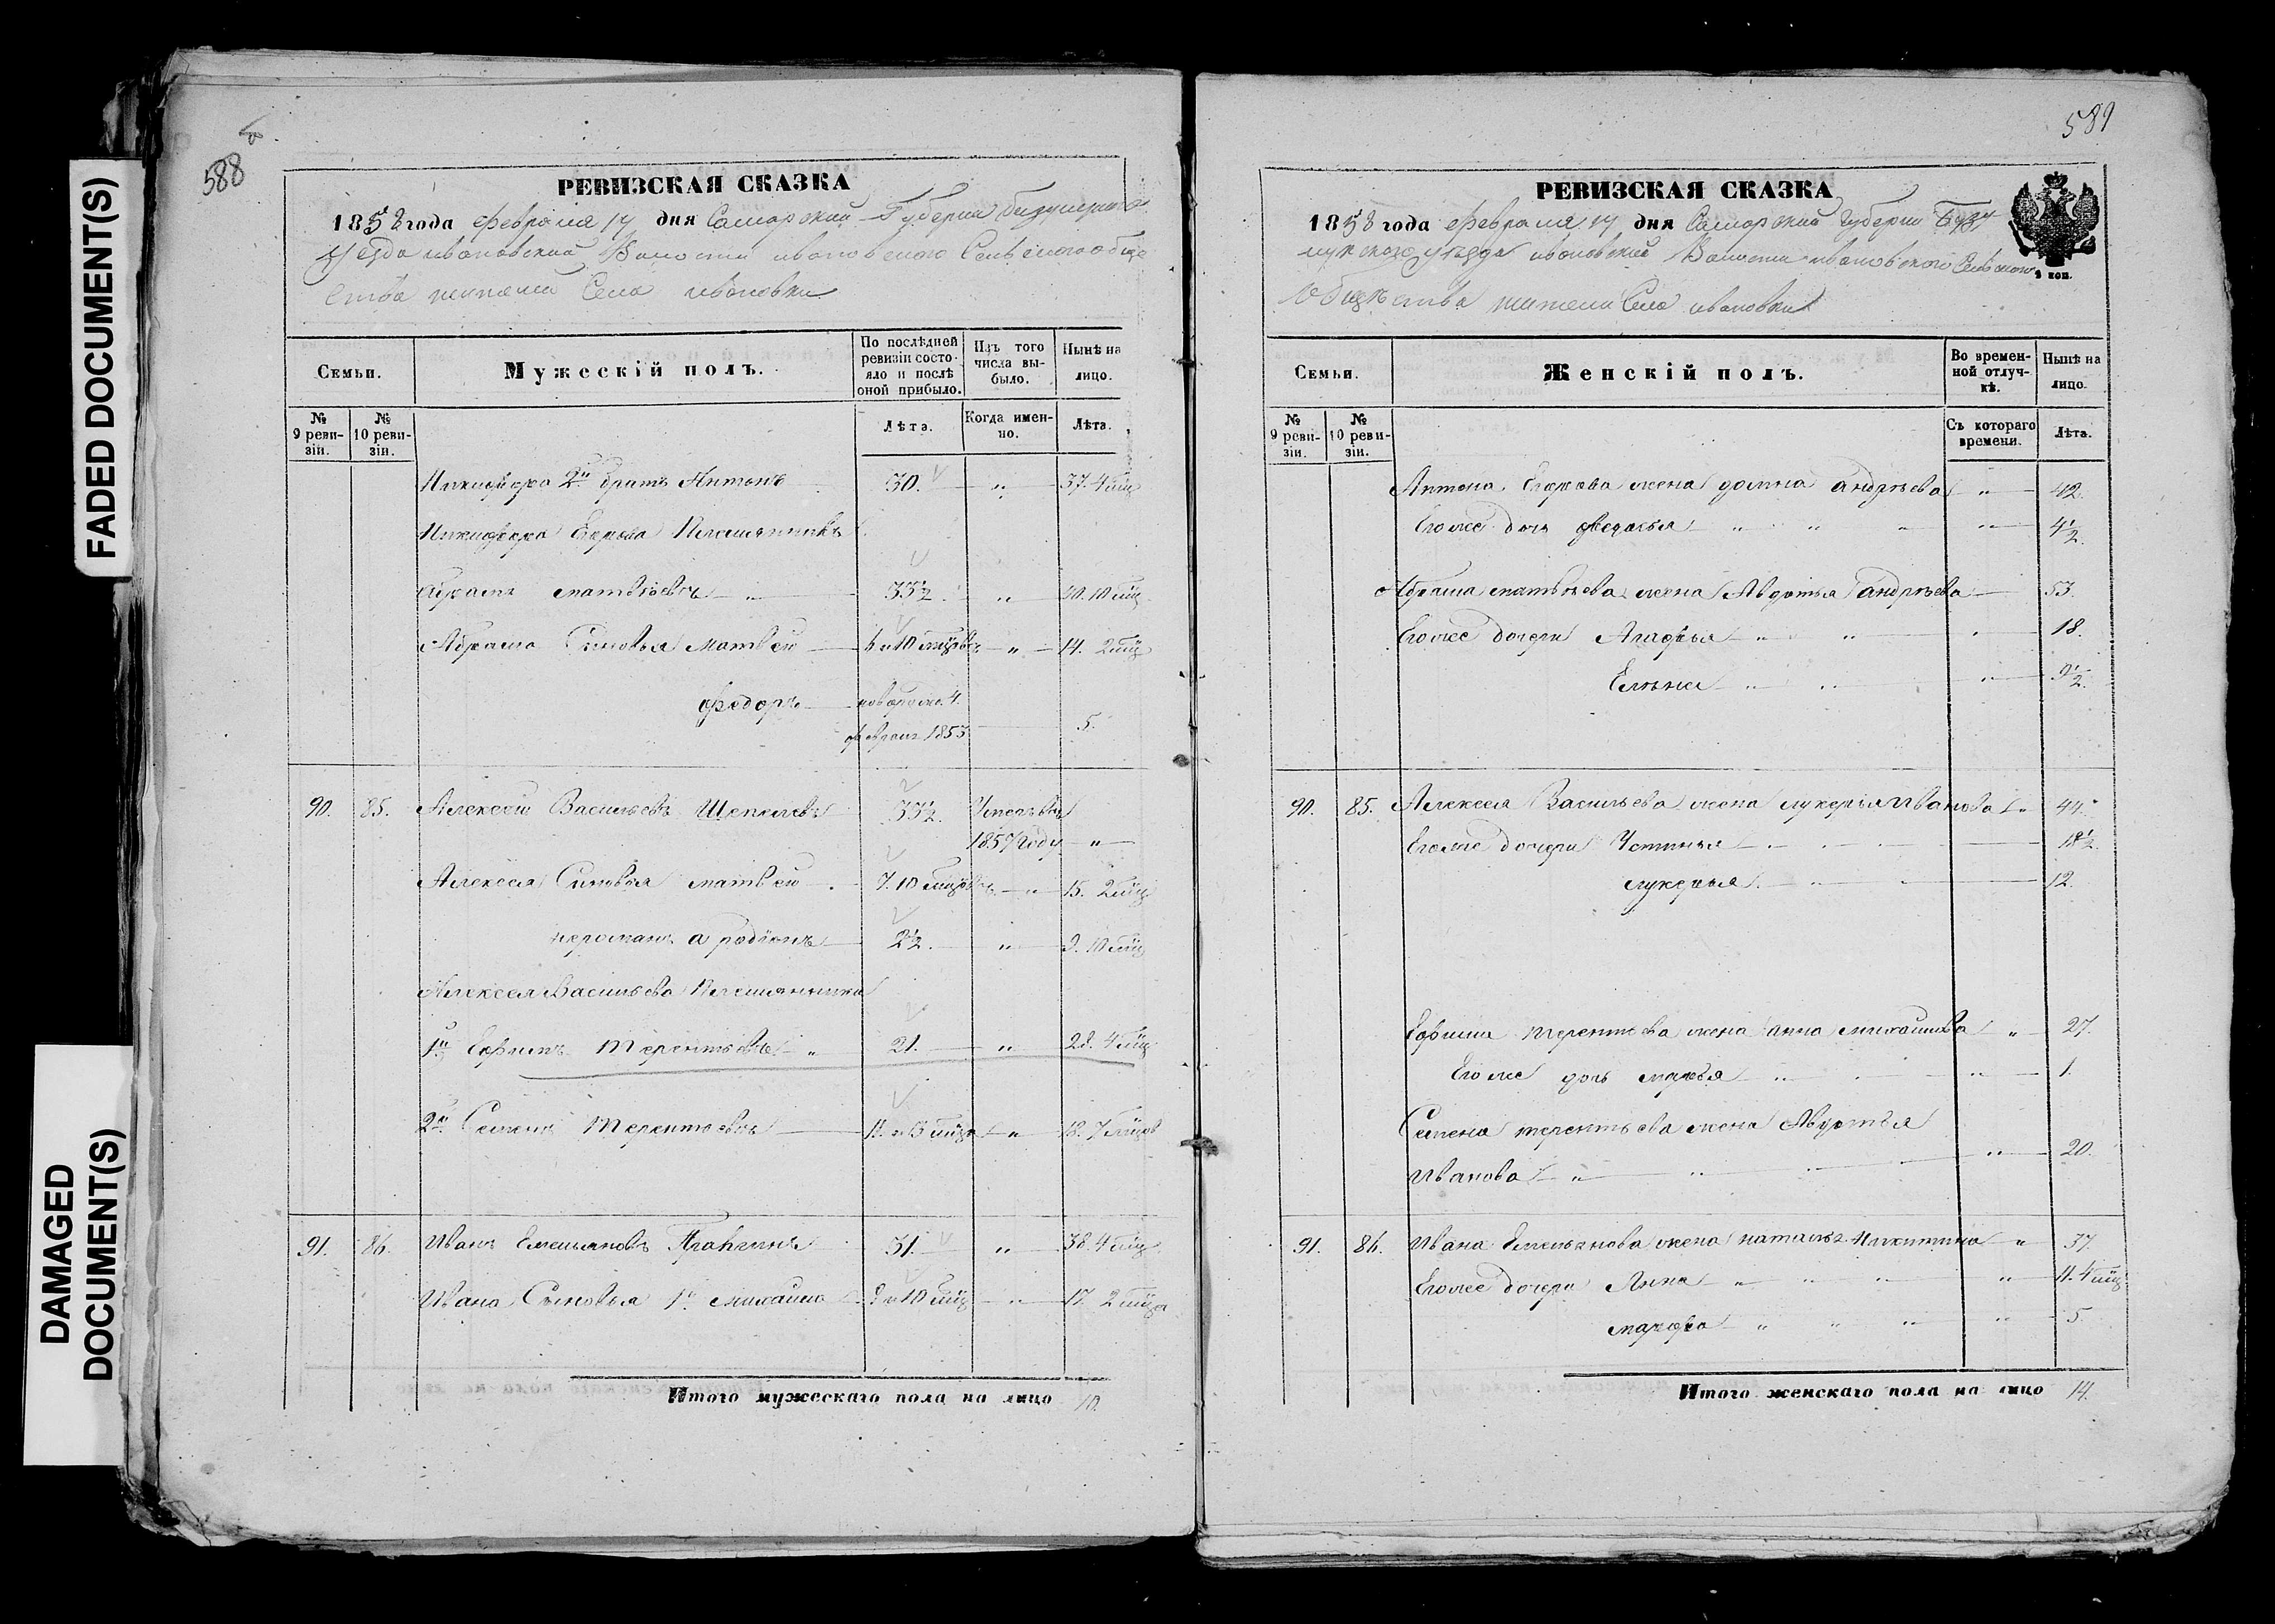 FADED DOCUMENT(S)
DAMAGED
DOCUMENT(S)
588
РЕВИЗСКАЯ СКАЗКА
1858 года февраля 14 дня Самарской Губернии Бузулукского
уезда ивановской Волости ивановского Сельского обще
ства жителей Села ивановки
Семьи.
Мужескій полъ.
По послѣдней ревизіи состояло и послѣ оной прибыло.
Изъ того числа выбыло.
Нынѣ на лицо.
№ 9 ревизіи.
№ 10 ревизіи.
Лѣта.
Когда именно.
Лѣта.
Никифора 2й братъ Антонъ 30. " 37. 4 мѣц
Никифора Егорова Племянникъ
Абрамъ матвѣевъ " 33½. " 40. 10 мѣц
Абрама Сыновья Матвей 6 и 10 мѣцовъ " 14. 2 мѣц
федоръ 4.
февраля 1853 5.
90. 85. Алексей Васильевъ Щепилевъ 33½. Умеръ въ
1857 году "
Алексея Сыновья матвей 7. 10 мѣцовъ " 15. 2 мѣц
а родіонъ 2½. " 9. 10 мѣц
Алексея Васильева Племянники
1й Ефимъ Терентьевъ " 21. " 28. 4 мѣц
2й Семенъ Терентьевъ " 18. 7 мѣцов
91. 86. Иванъ Емельяновъ 31. " 38. 4 мѣц
Ивана Сыновья 1й михаила 9 и 10 мѣц " 17. 2 мѣца
Итого мужескаго пола на лицо 10.
589
РЕВИЗСКАЯ СКАЗКА
1858 года февраля 14 дня Самарской губернии Бузу
лукского уезда ивановской Волости ивановского Сельского
общества жители Села ивановки
2 коп.
Семьи.
Женскій полъ.
Во временной отлучкѣ.
Нынѣ на лицо.
№ 9 ревизіи.
№ 10 ревизіи.
Съ котораго времени.
Лѣта.
Антона Егорова жена домна андреева " 42.
Егоже дочь федосья " " " " 4½.
Абрама матвѣева жена Авдотья андреева 53.
Егоже дочери Агафья " " 18.
Елѣна " " " 9½.
90. 85. Алексея Васильева жена лукерья Иванова " 44.
Егоже дочери Устинья 18½.
лукерья " " 12.
Ефима терентьева жена анна михайлова " 27.
Егоже дочь марья " " 1.
Семена терентьева жена Авдотья
Иванова " " " 20.
91. 86. Ивана Емельянова жена наталья Никитина " 37.
Егоже дочери Анна " " " " 11. 4 мѣц
марфа " " " " 5.
Итого женскаго пола на лицо 14.